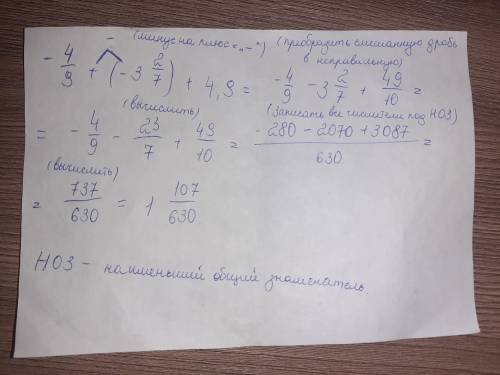 - (минус на плюс = „-") (преобразить смешанную дробь
в неправильную)
- 4/9 + (-3 2/7) + 4,9 = -4/9 - 3 2/7 + 49/10 =
(вычислить) (Записать все числители под НОЗ)
= - 4/9 - 23/7 + 49/10 = -280 - 2070 + 3087/630 =
(вычислить)
= 737/630 = 1 107/630
НОЗ - наименьший общий знаменатель.